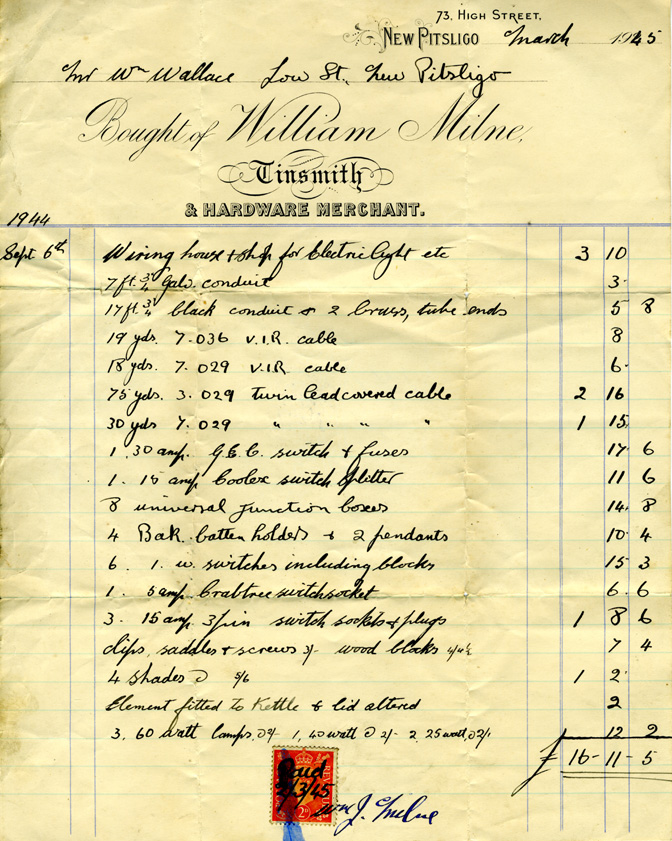 73, HIGH STREET,
NEW PITSLIGO March 1945
Mr Wm Wallace Low St., New Pitsligo
Bought of William Milne,
Tinsmith
& HARDWARE MERCHANT.
1944
Sept 6th Wiring house & shop for Electric light etc 3 10
7 ft. 3/4 Galv. conduit 3
17 ft. 3/4 black conduit & 2 brass, tube ends 5 8
19 yds. 7.036 V.I.R. cable 8
18 yds. 7.029 V.I.R. cable 6
75 yds. 3.029 twin lead covered cable 2 16
30 yds 7.029 " " " " 1 15
1. 30 amp. G.E.C. switch & fuses 17 6
1. 15 amp switch splitter 11 6
8 universal junction boxes 14 8
4 Bak. batten holders & 2 pendants 10 4
6. 1. w. switches including blocks 15 3
1. 5 amp. Crabtree switchsocket 6 6
3. 15 amp. 3 pin switch sockets & plugs 1 8 6
clips, saddles & screws 3/- wood blocks 4/4½ 7 4
4 shades @ 5/6 1 2
Element fitted to Kettle & lid altered 2
3. 60 watt lamps, @ 2/- 1, 40 watt @ 2/- 2. 25 watt, @ 2/1 12 2
£ 16-11-5
Paid
2/3/45
Wm J. Milne